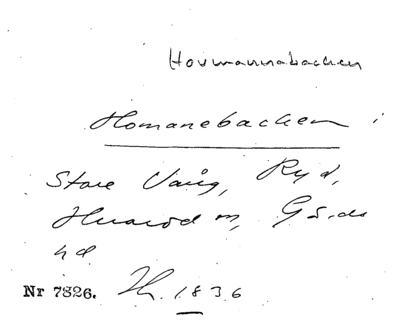 Hovmannabacken
Homanebacken i
Store Vång, Ryd,
Hvarod sn, Gärds
hd
Nr 7326. Th. 1836